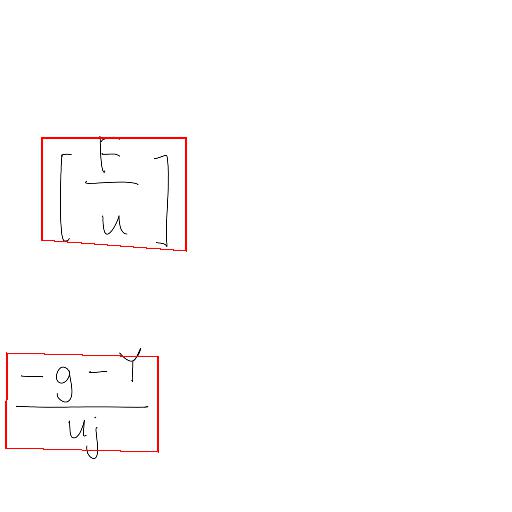 [ F / u ]
-g - Y / uj